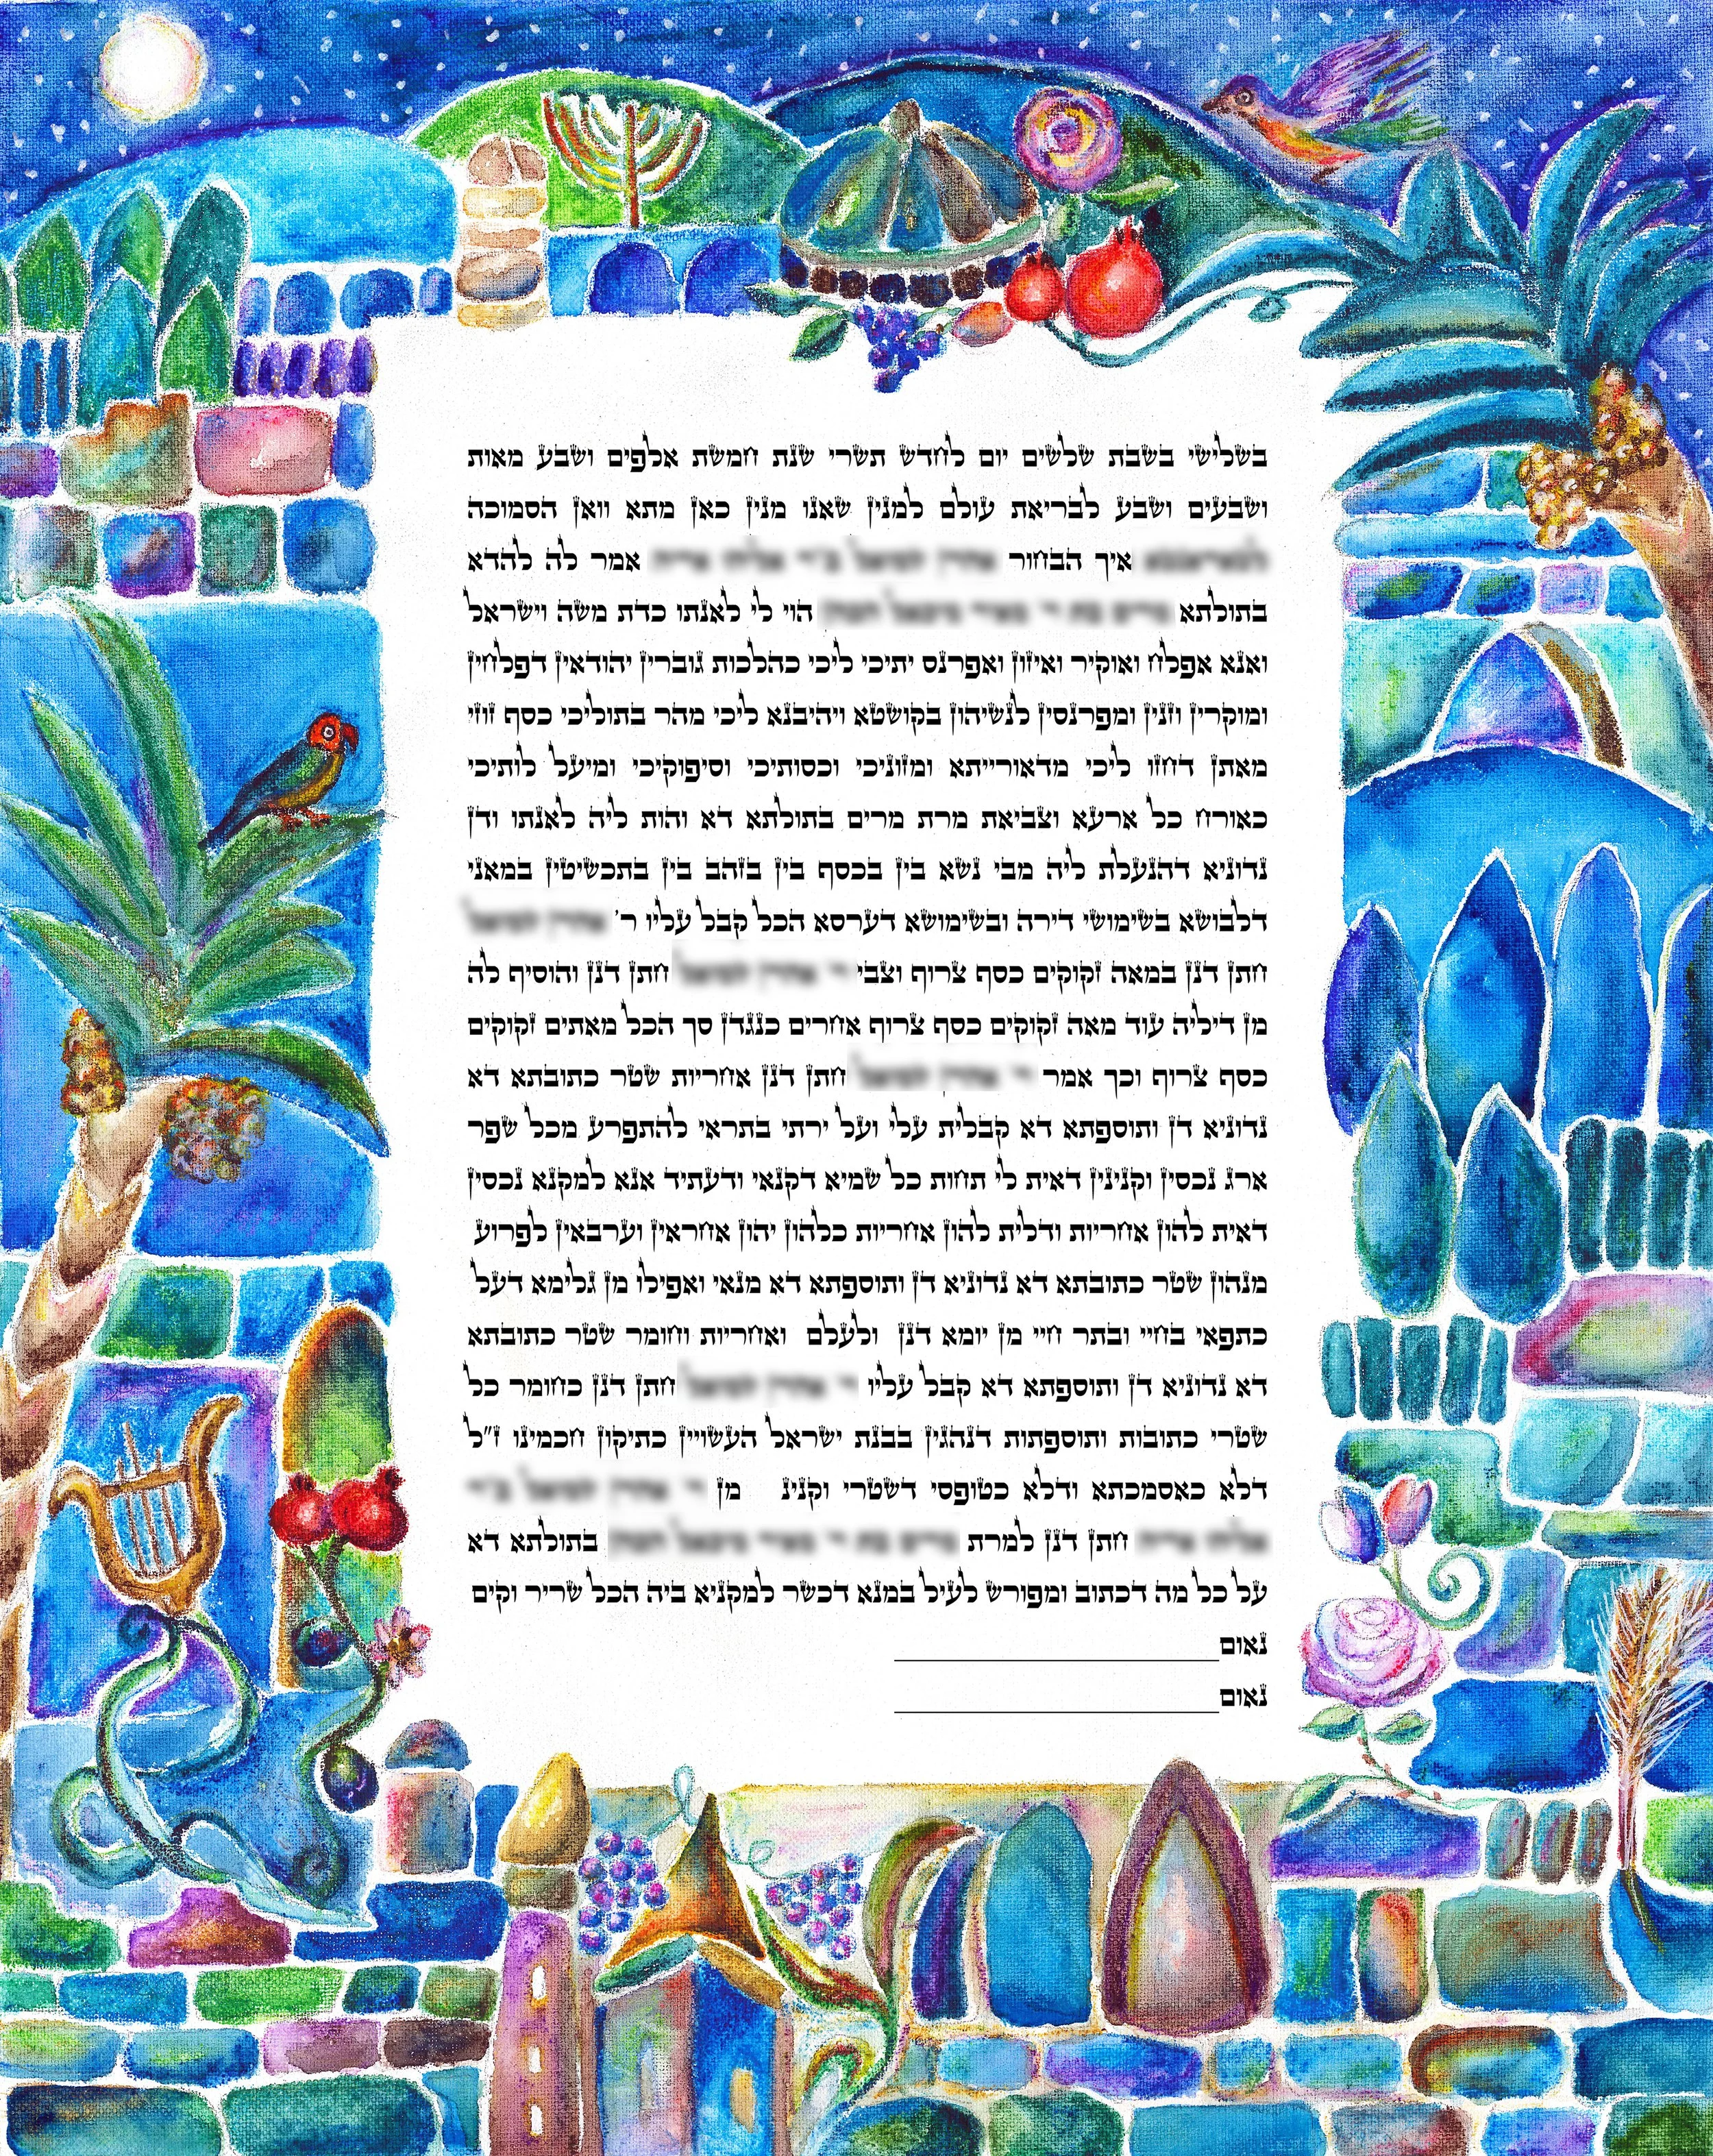 בשלישי בשבת שלשים יום לחדש תשרי שנת חמשת אלפים ושבע מאות
ושבעים ושבע לבריאת עולם למנין שאנו מנין כאן מתא וואן הסמוכה
איך הבחור אמר לה להדא
בתולתא הוי לי לאנתו כדת משה וישראל
ואנא אפלח ואוקיר ואיזון ואפרנס יתיכי ליכי כהלכות גוברין יהודאין דפלחין
ומוקרין וזנין ומפרנסין לנשיהון בקושטא ויהיבנא ליכי מהר בתוליכי כסף זוזי
מאתן דחזו ליכי מדאורייתא ומזוניכי וכסותיכי וסיפוקיכי ומיעל לותיכי
כאורח כל ארעא וצביאת מרת מרים בתולתא דא והות ליה לאנתו ודן
נדוניא דהנעלת ליה מבי נשא בין בכסף בין בזהב בין בתכשיטין במאני
דלבושא בשימושי דירה ובשימושא דערסא הכל קבל עליו ר'
חתן דנן במאה זקוקים כסף צרוף וצבי חתן דנן והוסיף לה
מן דיליה עוד מאה זקוקים כסף צרוף אחרים כנגדן סך הכל מאתים זקוקים
כסף צרוף וכך אמר חתן דנן אחריות שטר כתובתא דא
נדוניא דן ותוספתא דא קבלית עלי ועל ירתי בתראי להתפרע מכל שפר
ארג נכסין וקנינין דאית לי תחות כל שמיא דקנאי ודעתיד אנא למקנא נכסין
דאית להון אחריות ודלית להון אחריות כלהון יהון אחראין וערבאין לפרוע
מנהון שטר כתובתא דא נדוניא דן ותוספתא דא מנאי ואפילו מן גלימא דעל
כתפאי בחיי ובתר חיי מן יומא דנן ולעלם ואחריות וחומר שטר כתובתא
דא נדוניא דן ותוספתא דא קבל עליו חתן דנן כחומר כל
שטרי כתובות ותוספתות דנהגין בבנת ישראל העשויין כתיקון חכמינו ז"ל
דלא כאסמכתא ודלא כטופסי דשטרי וקנינ מן
חתן דנן למרת בתולתא דא
על כל מה דכתוב ומפורש לעיל במנא דכשר למקניא ביה הכל שריר וקים
נאום
נאום